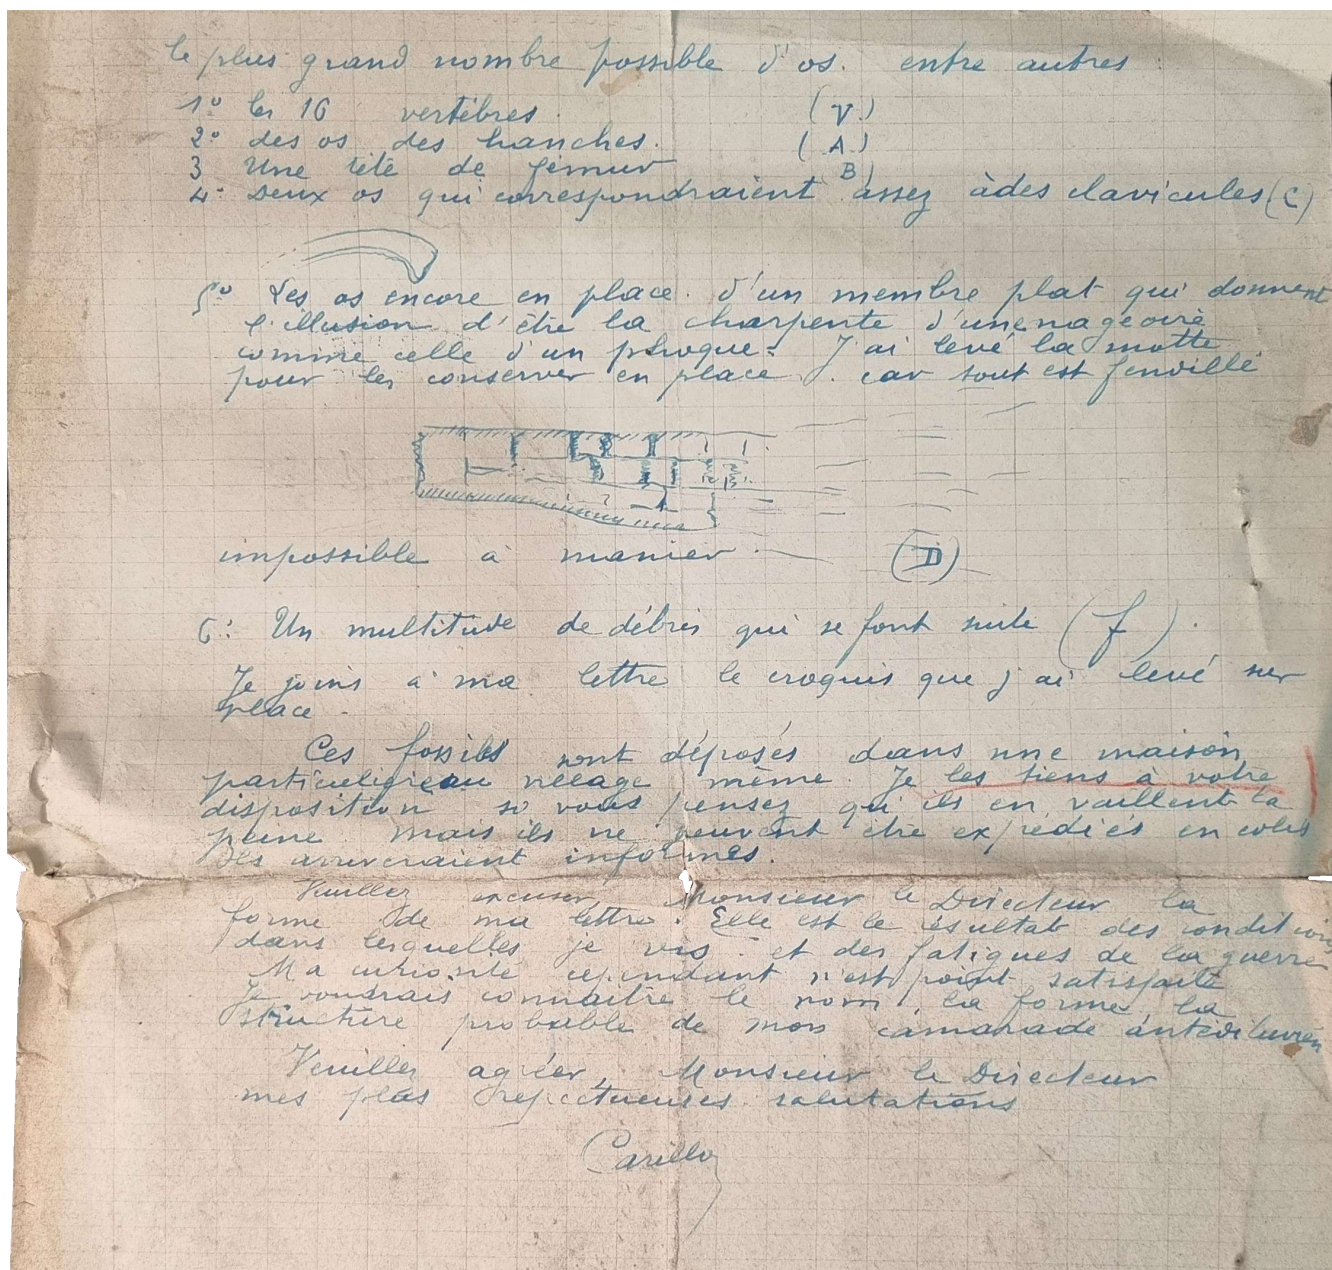 le plus grand nombre possible d'os. entre autres :
1º les 16 vertèbres. (V.)
2º des os des hanches. (A.)
3 Une tête de fémur B)
4º Deux os qui correspondraient assez à des clavicules (C)
5º Les os encore en place. d'un membre plat qui donnent
l'illusion d'être la charpente d'une nageoire
comme celle d'un phoque. J'ai levé la motte
pour les conserver en place. car tout est feuillé
impossible à manier. (D)
6º: Un multitude de débris qui se font suite (f).
Je joins à ma lettre le croquis que j'ai levé sur
place.
Ces fossiles sont déposés dans une maison
particulière au village même. Je les tiens à votre
disposition si vous pensez qu'ils en vaillent la
peine mais ils ne peuvent être expédiés en colis
Ils arriveraient informes.
Veuillez excuser, Monsieur le Directeur la
forme de ma lettre. Elle est le résultat des conditions
dans lesquelles je vis et des fatigues de la guerre
Ma curiosité cependant n'est point satisfaite
Je voudrais connaître le nom, la forme la
structure probable de mon camarade antédiluvien
Veuillez agréer, Monsieur le Directeur
mes plus respectueuses salutations